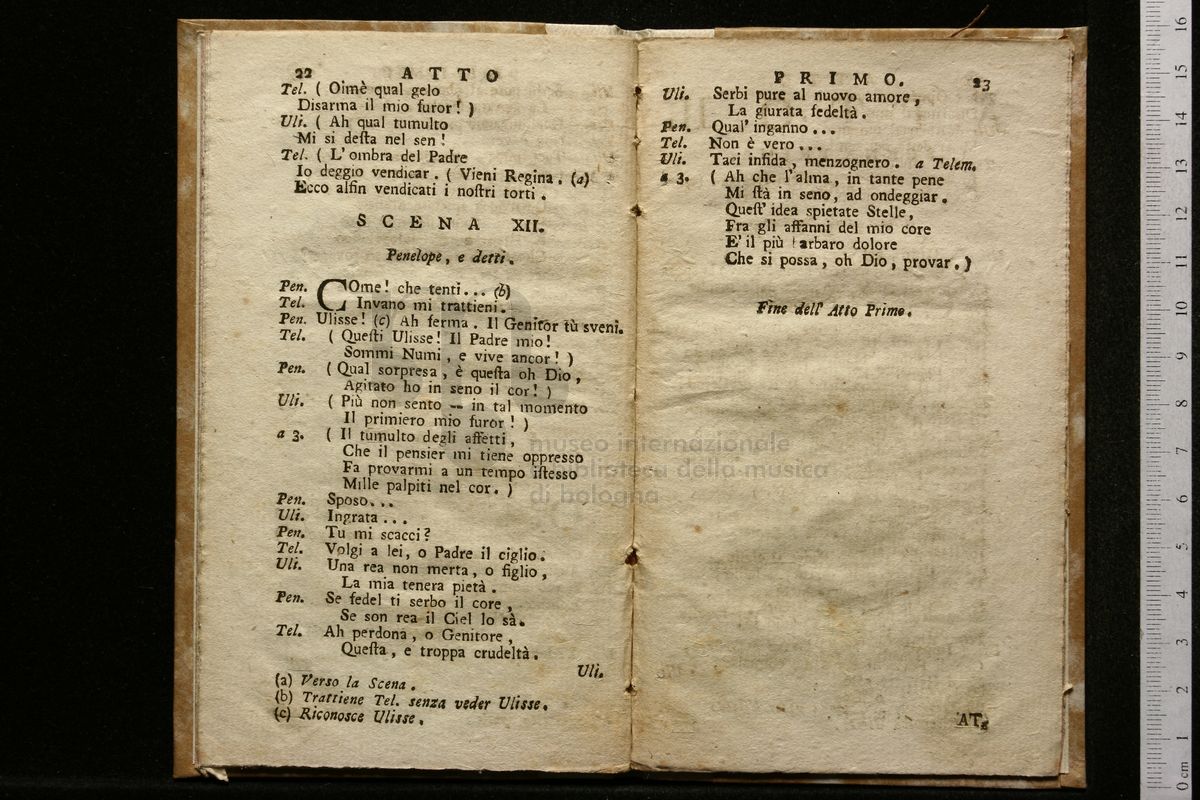 22 ATTO
Tel. ( Oimè qual gelo
Disarma il mio furor! )
Uli. ( Ah qual tumulto
Mi si desta nel sen!
Tel. ( L'ombra del Padre
Io deggio vendicar. ( Vieni Regina. (a)
Ecco alfin vendicati i nostri torti.
SCENA XII.
Penelope, e detti.
Pen. COme! che tenti... (b)
Tel. Invano mi trattieni.
Pen. Ulisse! (c) Ah ferma. Il Genitor tù sveni.
Tel. ( Questi Ulisse! Il Padre mio!
Sommi Numi, e vive ancor! )
Pen. ( Qual sorpresa, è questa oh Dio,
Agitato ho in seno il cor! )
Uli. ( Più non sento -- in tal momento
Il primiero mio furor! )
a 3. ( Il tumulto degli affetti,
Che il pensier mi tiene oppresso
Fa provarmi a un tempo istesso
Mille palpiti nel cor. )
Pen. Sposo...
Uli. Ingrata...
Pen. Tu mi scacci?
Tel. Volgi a lei, o Padre il ciglio.
Uli. Una rea non merta, o figlio,
La mia tenera pietà.
Pen. Se fedel ti serbo il core,
Se son rea il Ciel lo sà.
Tel. Ah perdona, o Genitore,
Questa, e troppa crudeltà.
Uli.
(a) Verso la Scena.
(b) Trattiene Tel. senza veder Ulisse.
(c) Riconosce Ulisse.
PRIMO. 23
Uli. Serbi pure al nuovo amore,
La giurata fedeltà.
Pen. Qual' inganno...
Tel. Non è vero...
Uli. Taci infida, menzognero. a Telem.
a 3. ( Ah che l'alma, in tante pene
Mi stà in seno, ad ondeggiar.
Quest' idea spietate Stelle,
Fra gli affanni del mio core
E' il più barbaro dolore
Che si possa, oh Dio, provar. )
Fine dell' Atto Primo.
AT-
museo internazionale
e biblioteca della musica
di bologna
0 cm 1 2 3 4 5 6 7 8 9 10 11 12 13 14 15 16